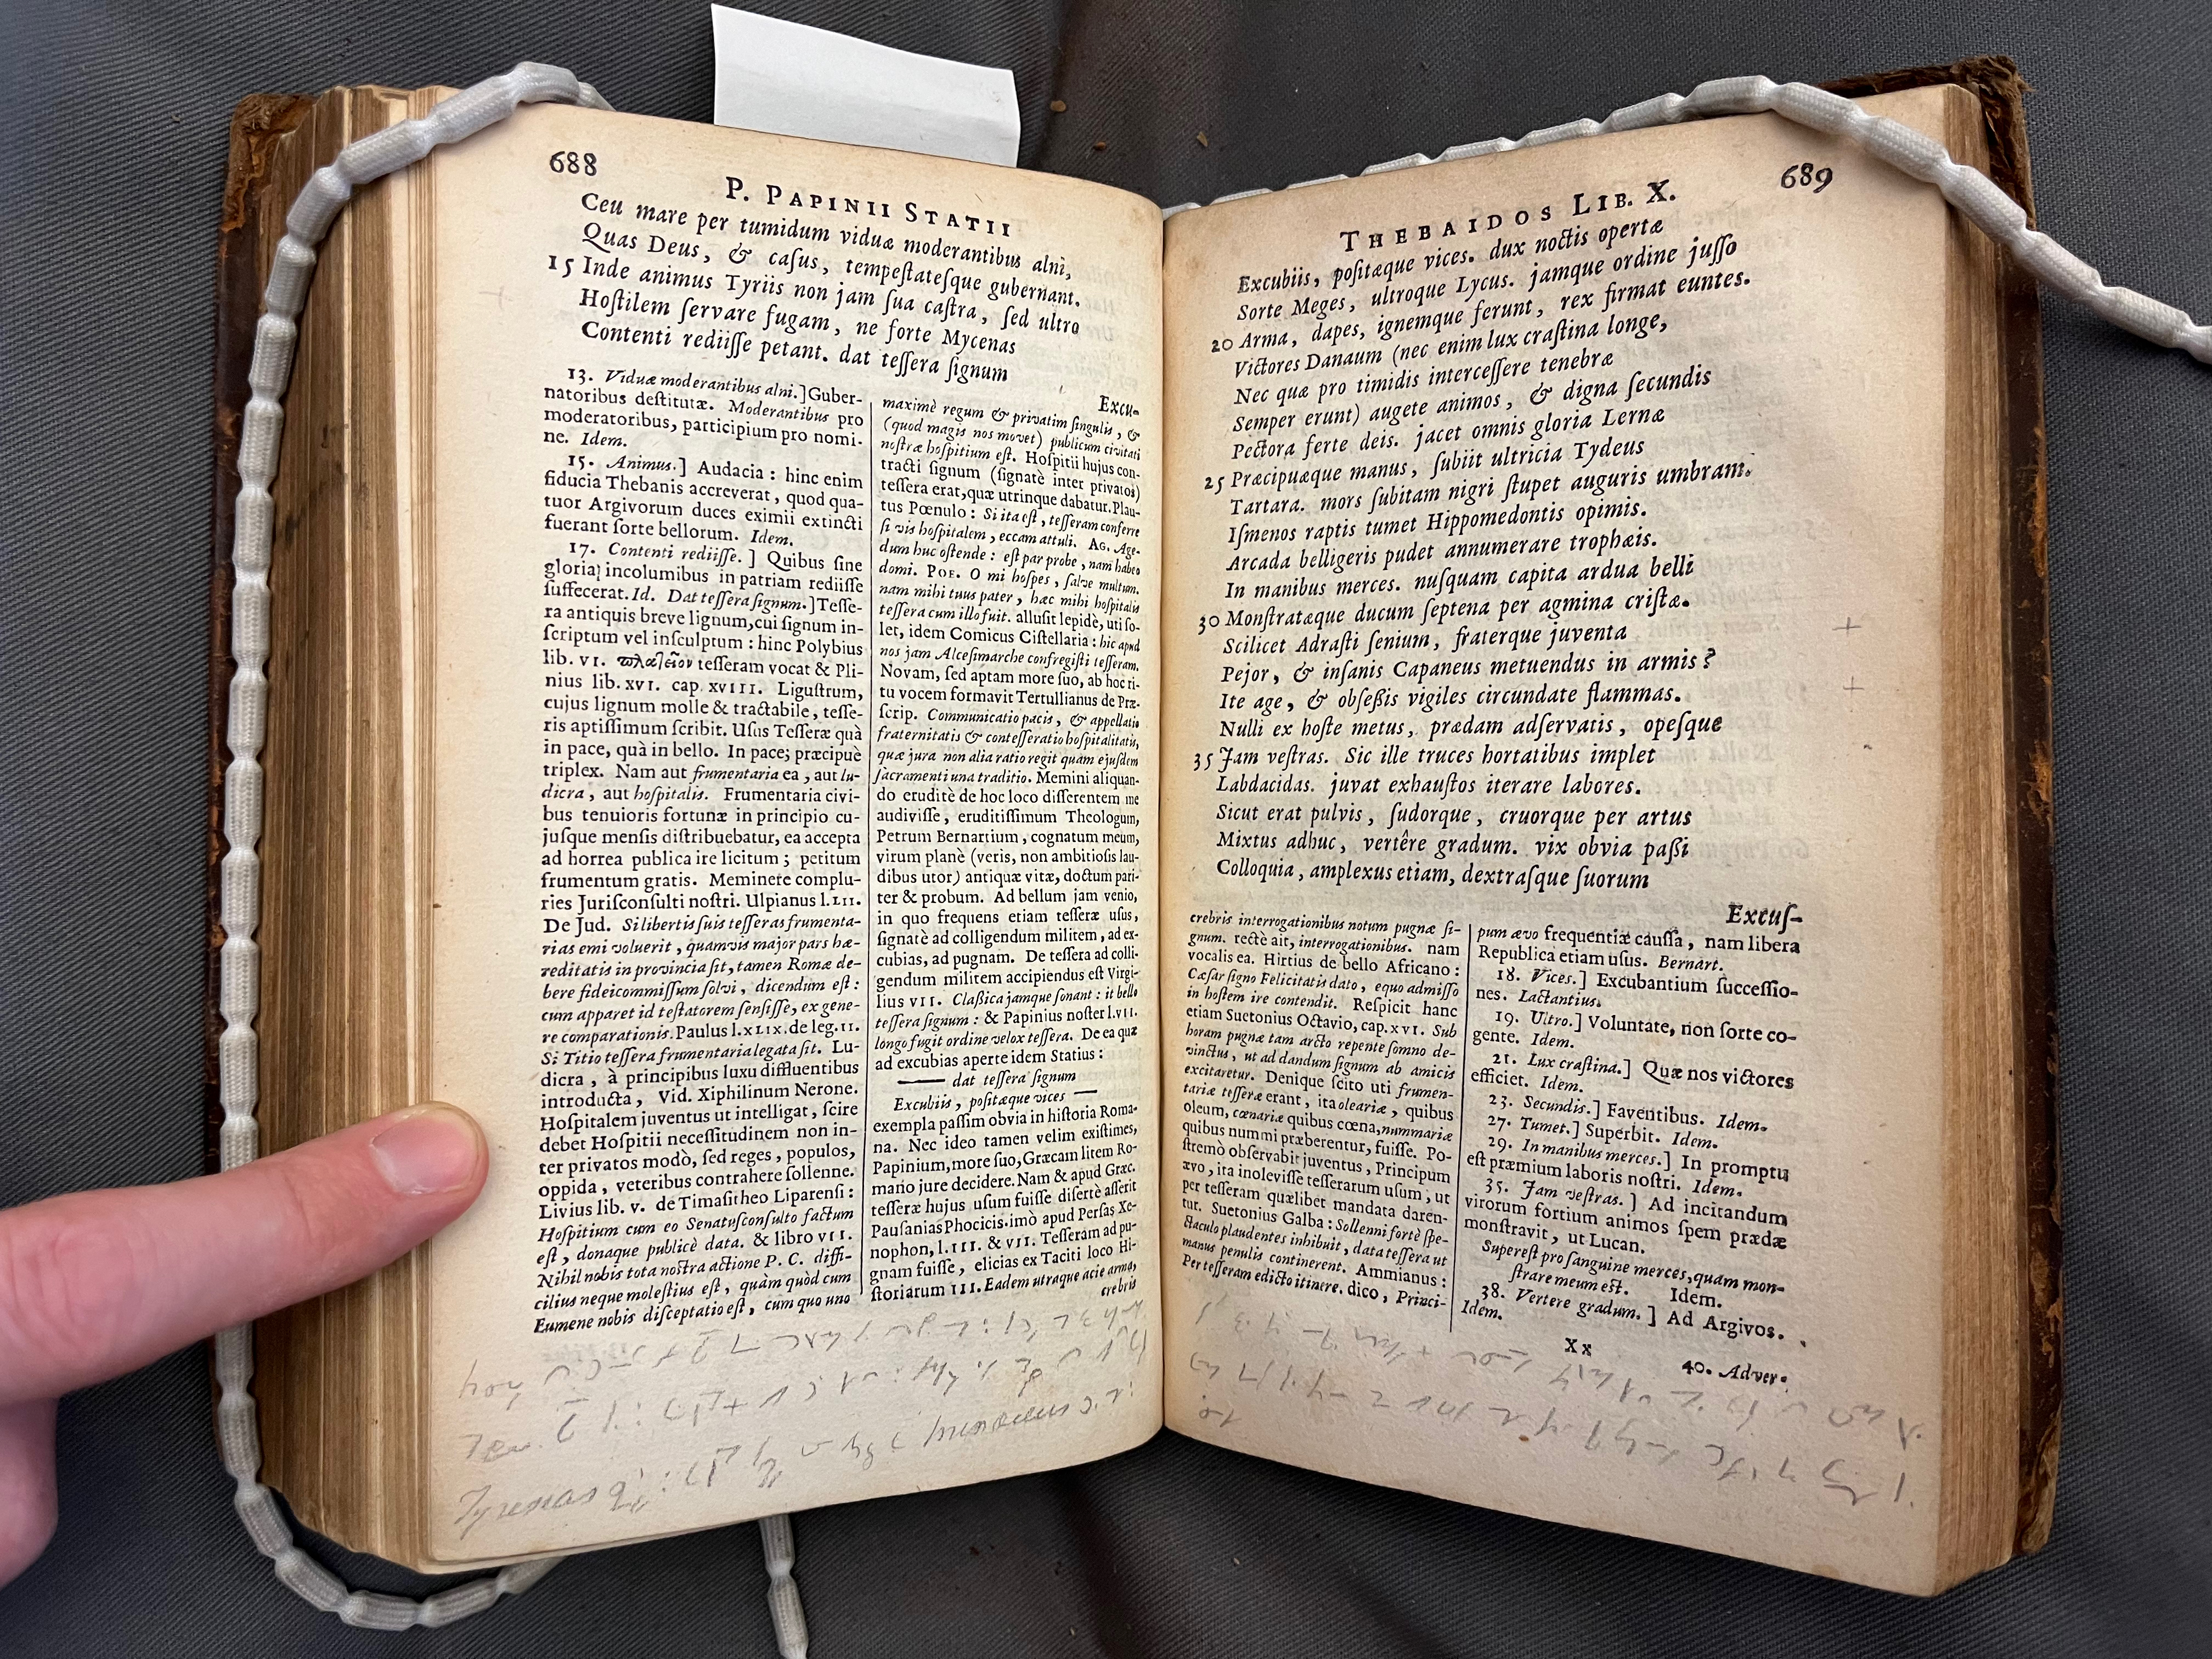 688
P. PAPINII STATII
Ceu mare per tumidum viduæ moderantibus alni,
Quas Deus, & caſus, tempeſtateſque gubernant.
15 Inde animus Tyriis non jam ſua caſtra, ſed ultro
Hoſtilem ſervare fugam, ne forte Mycenas
Contenti rediiſſe petant. dat teſſera ſignum
Excu-
13. Viduæ moderantibus alni.] Guber-
natoribus deſtitutæ. Moderantibus pro
moderatoribus, participium pro nomi-
ne. Idem.
15. Animus.] Audacia : hinc enim
fiducia Thebanis accreverat, quod qua-
tuor Argivorum duces eximii extincti
fuerant ſorte bellorum. Idem.
17. Contenti rediiſſe.] Quibus ſine
gloria incolumibus in patriam rediiſſe
ſuffecerat. Id. Dat teſſera ſignum.] Teſſe-
ra antiquis breve lignum, cui ſignum in-
ſcriptum vel inſculptum : hinc Polybius
lib. VI. teſſeram vocat & Pli-
nius lib. XVI. cap. XVIII. Liguſtrum,
cujus lignum molle & tractabile, teſſe-
ris aptiſſimum ſcribit. Uſus Teſſeræ quà
in pace, quà in bello. In pace; præcipuè
triplex. Nam aut frumentaria ea, aut lu-
dicra, aut hoſpitalis. Frumentaria civi-
bus tenuioris fortunæ in principio cu-
juſque menſis diſtribuebatur, ea accepta
ad horrea publica ire licitum ; petitum
frumentum gratis. Meminere complu-
ries Juriſconſulti noſtri. Ulpianus l. LII.
De Jud. Si libertis ſuis teſſeras frumenta-
rias emi voluerit, quamvis major pars hæ-
reditatis in provincia ſit, tamen Romæ de-
bere fideicommiſſum ſolvi, dicendum eſt :
cum apparet id teſtatorem ſenſiſſe, ex gene-
re comparationis. Paulus l. XLIX. de leg. II.
Si Titio teſſera frumentaria legata ſit. Lu-
dicra, à principibus luxu diffluentibus
introducta, Vid. Xiphilinum Nerone.
Hoſpitalem juventus ut intelligat, ſcire
debet Hoſpitii neceſſitudinem non in-
ter privatos modò, ſed reges, populos,
oppida, veteribus contrahere ſollenne.
Livius lib. V. de Timaſitheo Liparenſi :
Hoſpitium cum eo Senatuſconſulto factum
eſt, donaque publicè data. & libro VII.
Nihil nobis tota noſtra actione P. C. diffi-
cilius neque moleſtius eſt, quàm quòd cum
Eumene nobis diſceptatio eſt, cum quo uno
maximè regum & privatim ſingulis, &
(quod magis nos movet) publicum civitati
noſtræ hoſpitium eſt. Hoſpitii hujus con-
tracti ſignum (ſignatè inter privatos)
teſſera erat, quæ utrinque dabatur. Plau-
tus Pœnulo : Si ita eſt, teſſeram conferre
ſi vis hoſpitalem, eccam attuli. AG. Age-
dum huc oſtende : eſt par probe, nam habeo
domi. POE. O mi hoſpes, ſalve multum.
nam mihi tuus pater, hæc mihi hoſpitalis
teſſera cum illo fuit. alluſit lepidè, uti ſo-
let, idem Comicus Ciſtellaria : hic apud
nos jam Alceſimarche confregiſti teſſeram.
Novam, ſed aptam more ſuo, ab hoc ri-
tu vocem formavit Tertullianus de Præ-
ſcrip. Communicatio pacis, & appellatio
fraternitatis & conteſſeratio hoſpitalitatis,
quæ jura non alia ratio regit quam ejuſdem
ſacramenti una traditio. Memini aliquan-
do eruditè de hoc loco diſſerentem me
audiviſſe, eruditiſſimum Theologum,
Petrum Bernartium, cognatum meum,
virum planè (veris, non ambitioſis lau-
dibus utor) antiquæ vitæ, doctum pari-
ter & probum. Ad bellum jam venio,
in quo frequens etiam teſſeræ uſus,
ſignatè ad colligendum militem, ad ex-
cubias, ad pugnam. De teſſera ad colli-
gendum militem accipiendus eſt Virgi-
lius VII. Claßica jamque ſonant : it bello
teſſera ſignum : & Papinius noſter l. VII.
longo fugit ordine velox teſſera. De ea quæ
ad excubias aperte idem Statius :
—— dat teſſera ſignum
Excubiis, poſitæque vices ——
exempla paſſim obvia in hiſtoria Roma-
na. Nec ideo tamen velim exiſtimes,
Papinium, more ſuo, Græcam litem Ro-
mano jure decidere. Nam & apud Græc.
teſſeræ hujus uſum fuiſſe diſertè aſſerit
Pauſanias Phocicis. imò apud Perſas Xe-
nophon, l. III. & VII. Teſſeram ad pu-
gnam fuiſſe, elicias ex Taciti loco Hi-
ſtoriarum III. Eadem utraque acie arma,
crebris
689
THEBAIDOS LIB. X.
Excubiis, poſitæque vices. dux noctis opertæ
Sorte Meges, ultroque Lycus. jamque ordine juſſo
20 Arma, dapes, ignemque ferunt, rex firmat euntes.
Victores Danaum (nec enim lux craſtina longe,
Nec quæ pro timidis interceſſere tenebræ
Semper erunt) augete animos, & digna ſecundis
Pectora ferte deis. jacet omnis gloria Lernæ
25 Præcipuæque manus, ſubiit ultricia Tydeus
Tartara. mors ſubitam nigri ſtupet auguris umbram.
Iſmenos raptis tumet Hippomedontis opimis.
Arcada belligeris pudet annumerare trophæis.
In manibus merces. nuſquam capita ardua belli
30 Monſtratæque ducum ſeptena per agmina criſtæ.
Scilicet Adraſti ſenium, fraterque juventa
Pejor, & inſanis Capaneus metuendus in armis?
Ite age, & obſeßis vigiles circundate flammas.
Nulli ex hoſte metus, prædam adſervatis, opeſque
35 Jam veſtras. Sic ille truces hortatibus implet
Labdacidas. juvat exhauſtos iterare labores.
Sicut erat pulvis, ſudorque, cruorque per artus
Mixtus adhuc, vertêre gradum. vix obvia paßi
Colloquia, amplexus etiam, dextraſque ſuorum
Excuſ-
crebris interrogationibus notum pugnæ ſi-
gnum. rectè ait, interrogationibus. nam
vocalis ea. Hirtius de bello Africano :
Cæſar ſigno Felicitatis dato, equo admiſſo
in hoſtem ire contendit. Reſpicit hanc
etiam Suetonius Octavio, cap. XVI. Sub
horam pugnæ tam arcto repente ſomno de-
vinctus, ut ad dandum ſignum ab amicis
excitaretur. Denique ſcito uti frumen-
tariæ teſſeræ erant, ita oleariæ, quibus
oleum, cœnariæ quibus cœna, nummariæ
quibus nummi præberentur, fuiſſe. Po-
ſtremò obſervabit juventus, Principum
ævo, ita inoleviſſe teſſerarum uſum, ut
per teſſeram quælibet mandata daren-
tur. Suetonius Galba : Sollenni fortè ſpe-
ctaculo plaudentes inhibuit, data teſſera ut
manus penulis continerent. Ammianus :
Per teſſeram edicto itinere. dico, Princi-
pum ævo frequentiæ cauſſa, nam libera
Republica etiam uſus. Bernart.
18. Vices.] Excubantium ſucceſſio-
nes. Lactantius.
19. Ultro.] Voluntate, non ſorte co-
gente. Idem.
21. Lux craſtina.] Quæ nos victores
efficiet. Idem.
23. Secundis.] Faventibus. Idem.
27. Tumet.] Superbit. Idem.
29. In manibus merces.] In promptu
eſt præmium laboris noſtri. Idem.
35. Jam veſtras.] Ad incitandum
virorum fortium animos ſpem prædæ
monſtravit, ut Lucan.
Supereſt pro ſanguine merces, quam mon-
ſtrare meum eſt. Idem.
38. Vertere gradum.] Ad Argivos.
Idem.
Xx
40. Adver-